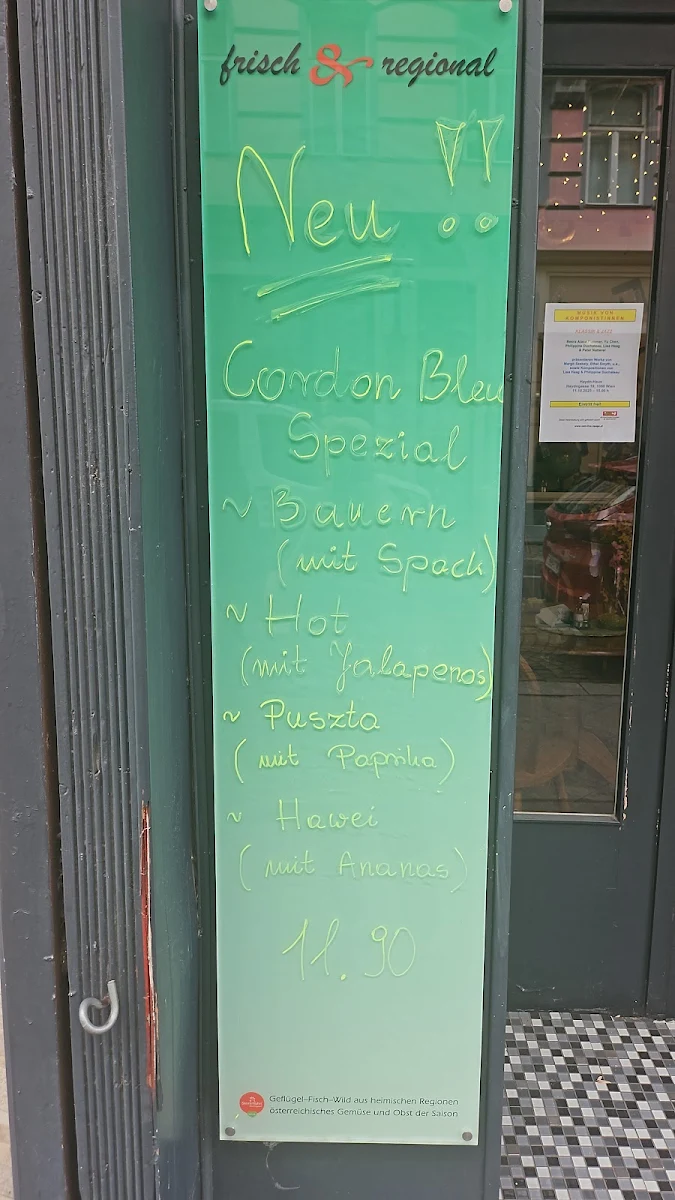 frisch & regional
Neu !!
Cordon Bleu
Spezial
~ Bauern
(mit Spack)
~ Hot
(mit Jalapenos)
~ Puszta
(mit Paprika)
~ Hawei
(mit Ananas)
11.90
Geflügel-Fisch-Wild aus heimischen Regionen
österreichisches Gemüse und Obst der Saison
MUSIK VON
KOMPONISTINNEN